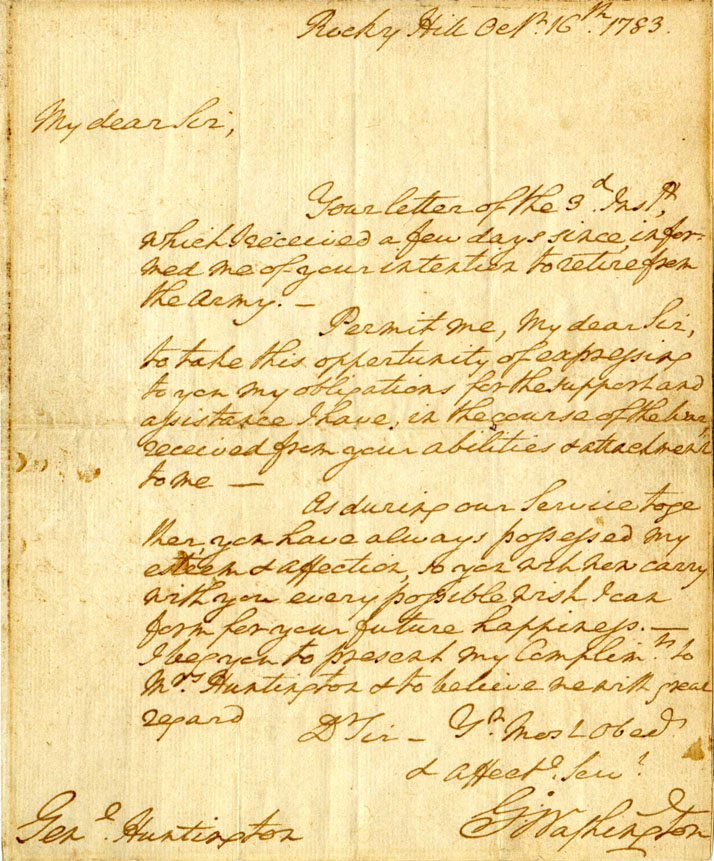 Rocky Hill Octr. 16th. 1783.
My dear Sir,
Your letter of the 3d. Instt,
which I received a few days since, infor-
med me of your intention to retire from
the Army. —
Permit me, My dear Sir,
to take this opportunity of expressing
to you my obligations for the support and
assistance I have, in the course of the War,
received from your abilities & attachment
to me —
As during our Service toge
ther, you have always possessed my
esteem & affection, so you will now carry
with you every possible wish I can
form for your future happiness. —
I beg you to present my Complimts. to
Mrs. Huntington & to believe me with great
regard
Dr Sir — Yr. Most Obedt
& affecte. Servt.
Go: Washington
Genl. Huntington